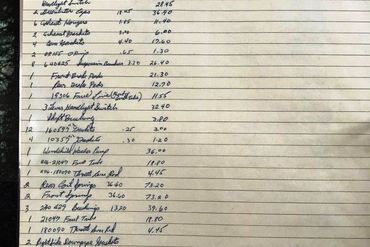 Headlight Switch 28.45
2 Distributor Caps 18.45 36.90
6 Exhaust Hangers 1.85 11.40
2 Exhaust Brackets 3.00 6.00
4 Brackets 4.40 17.60
2 08155 O Rings .65 1.30
8 640825 Suspension Bushes 3.30 26.40
1 Front Brake Pads 21.30
1 Rear Brake Pads 12.70
1 15206 Fuel Line 11.55
1 3 Headlight Switch 32.40
Shift Bushing 3.80
12 160597 Gaskets .25 3.00
4 10359 Gaskets .30 1.20
1 Windshield Washer Pump 36.00
1 016-21047 Fuel Tube 18.80
1 016-180090 Throttle Arm Rod 4.45
2 Rear Coil Springs 36.60 73.20
2 Front Springs 36.60 73.20
3 240629 Bushings 13.20 39.60
1 21047 Fuel Tube 18.80
1 180090 Throttle Arm Rod 4.45
2 Right Side Downpipe Gaskets